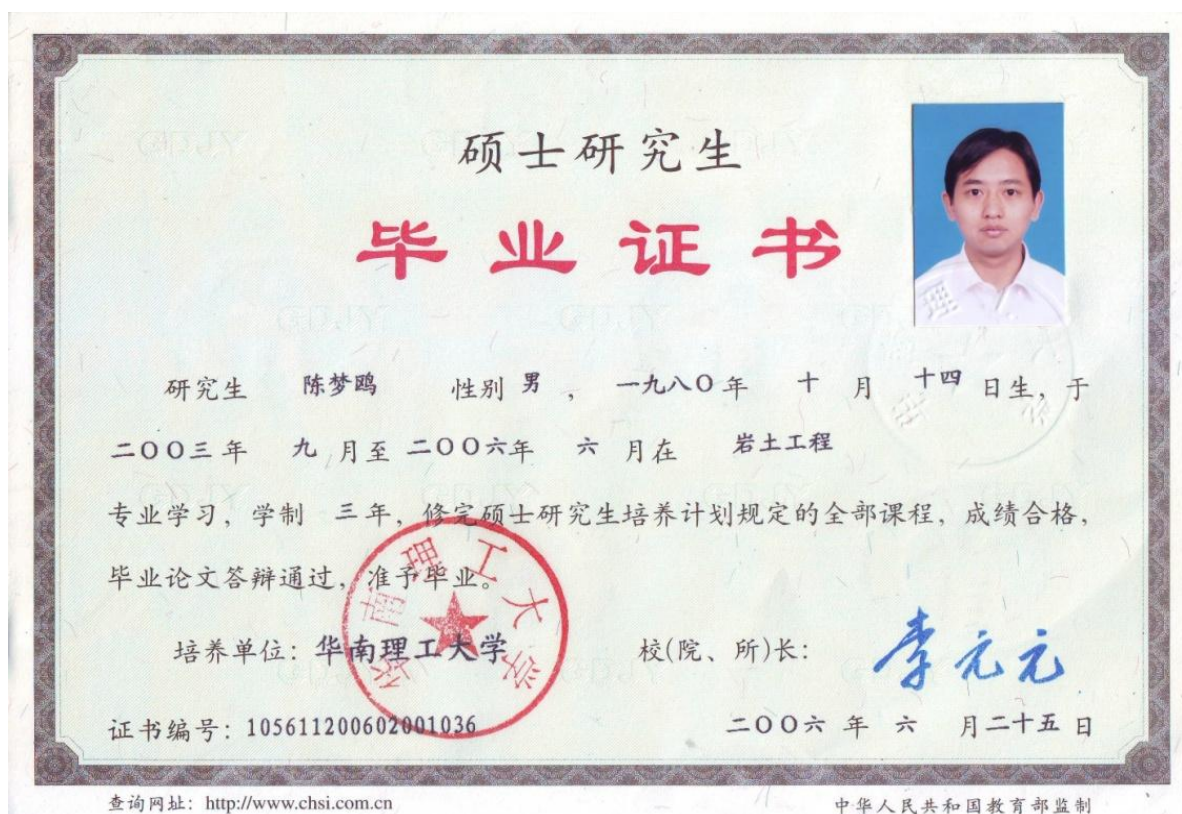 硕士研究生
毕业证书
研究生 陈梦鸥 性别 男 , 一九八〇年 十 月 十四 日生, 于
二〇〇三年 九 月至 二〇〇六年 六 月在 岩土工程
专业学习, 学制 三年, 修完硕士研究生培养计划规定的全部课程, 成绩合格,
毕业论文答辩通过, 准予毕业。
华南理工大学
培养单位: 华南理工大学 校(院、所)长: 李元元
证书编号: 105611200602001036 二〇〇六 年 六 月二十五 日
查询网址: http://www.chsi.com.cn 中华人民共和国教育部监制